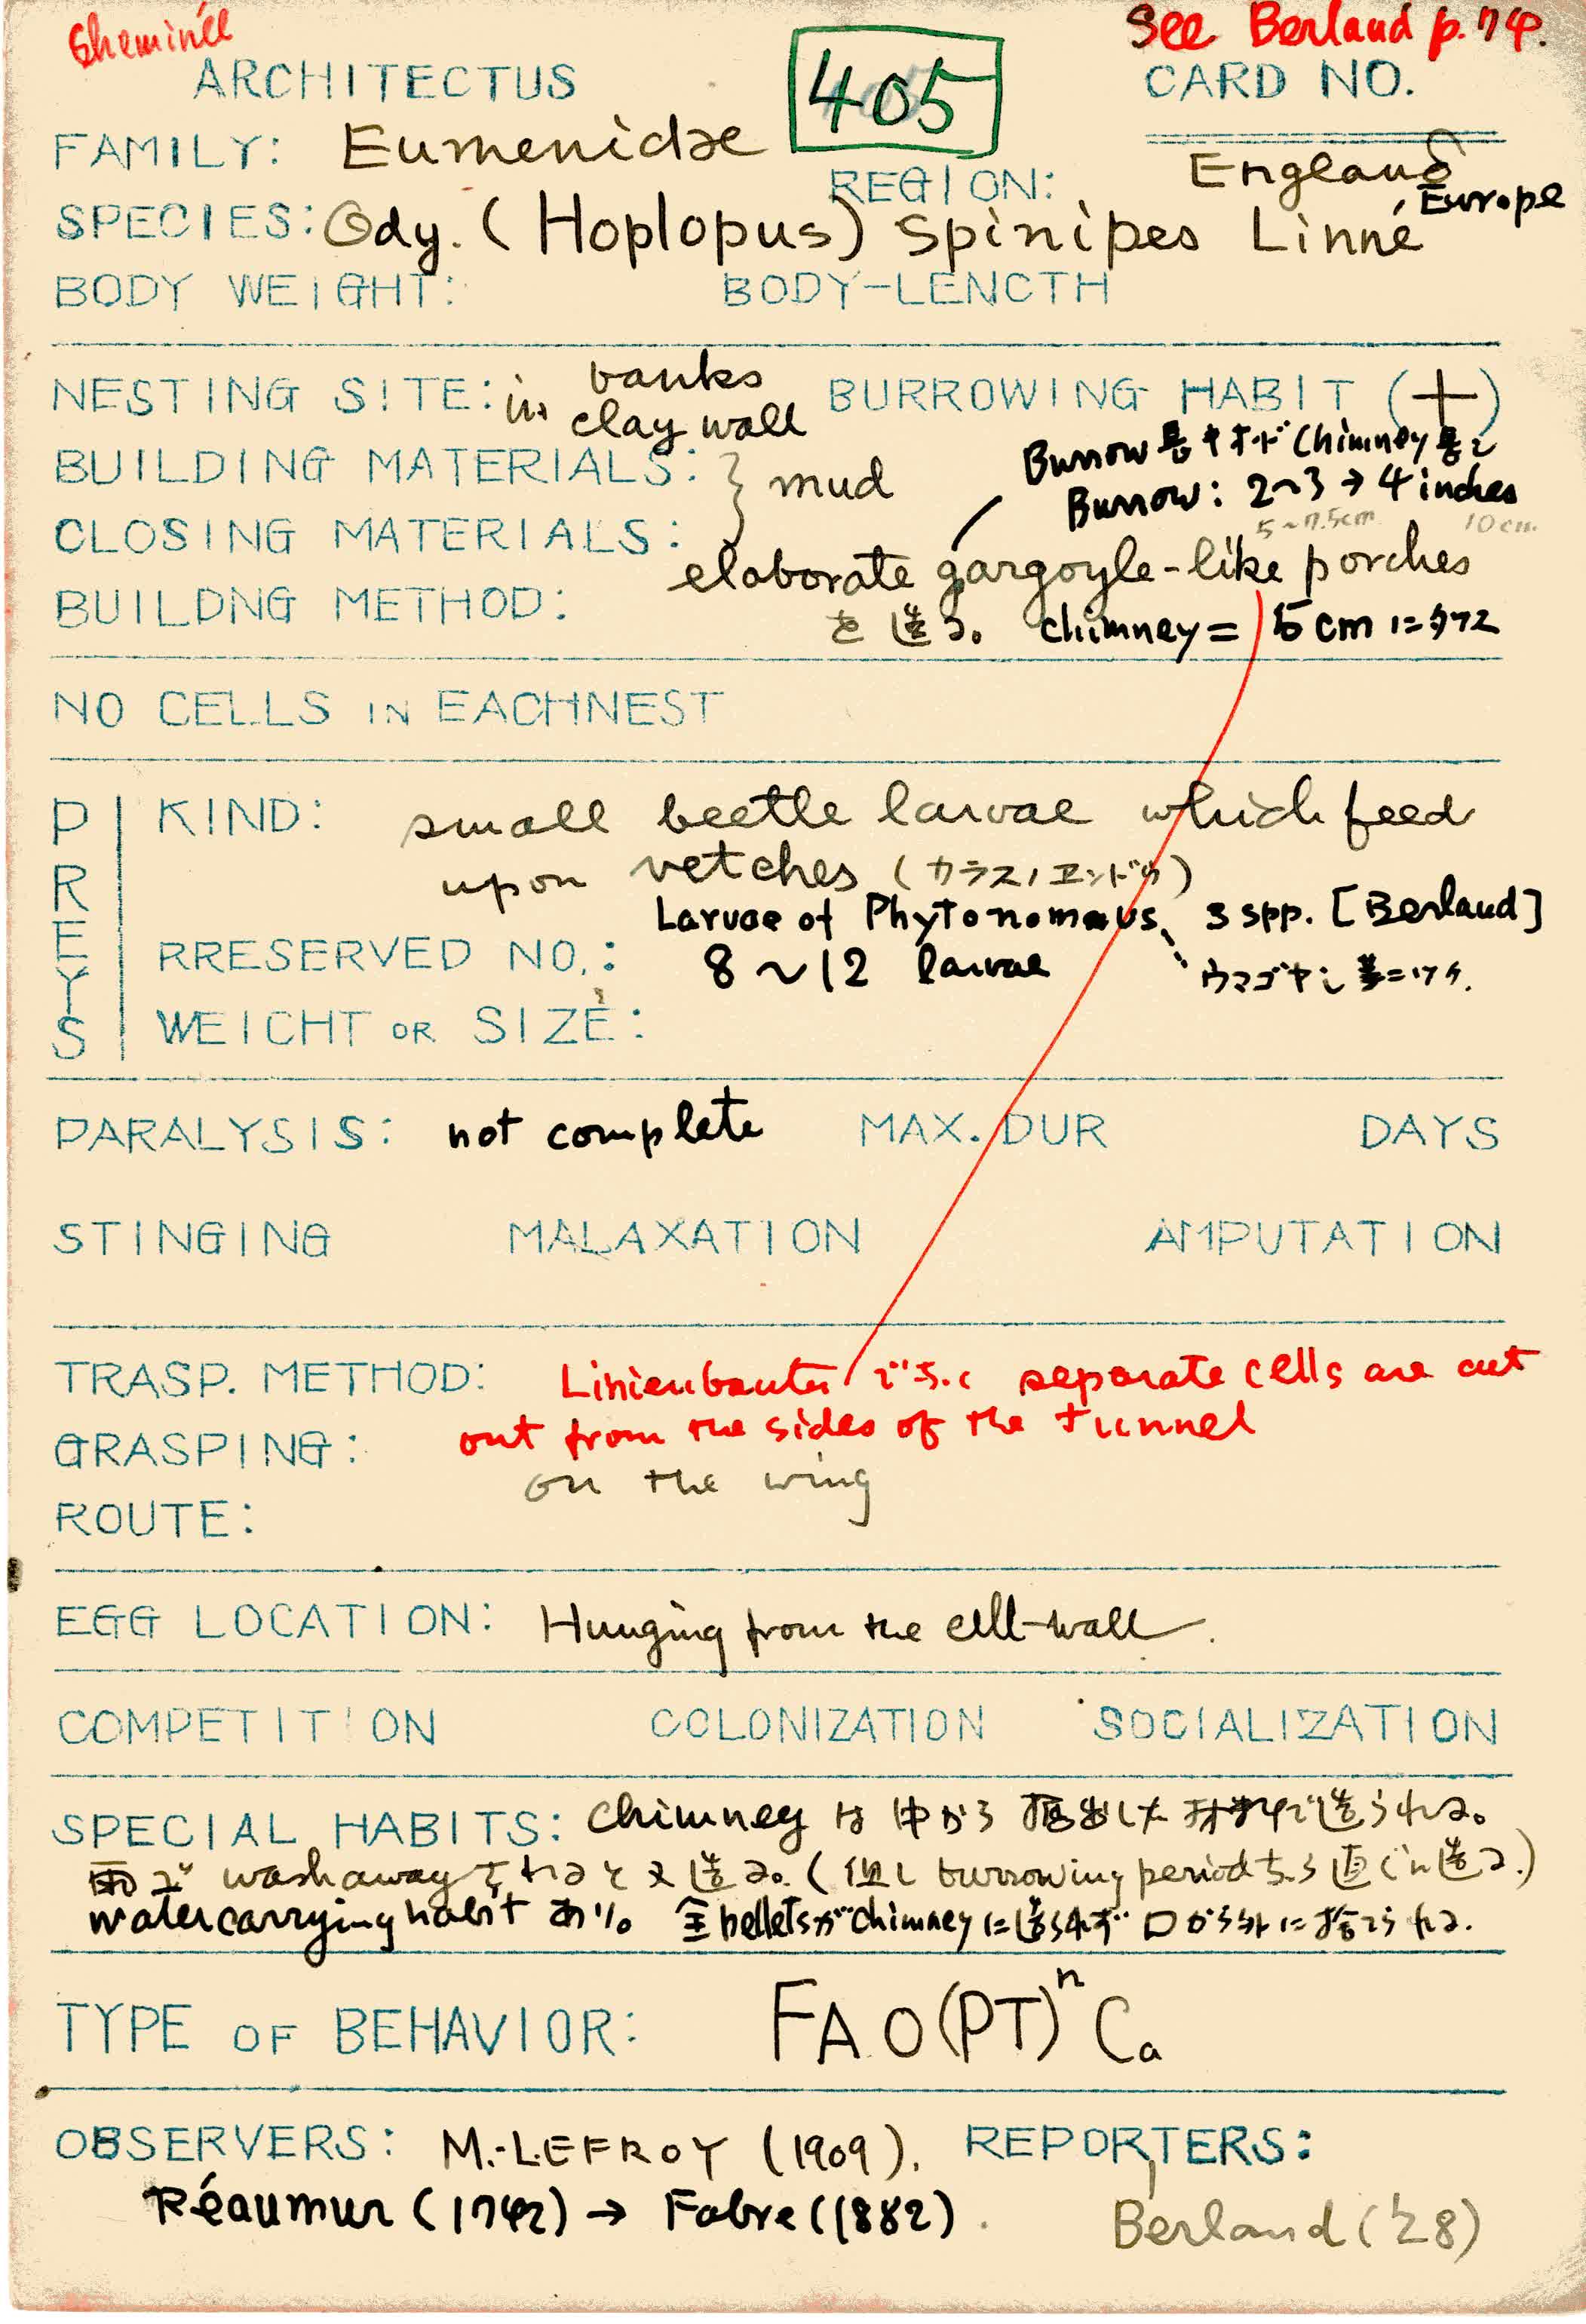 Cheminée
See Berland p.74.
ARCHITECTUS
405
CARD NO.
FAMILY: Eumenidae
REGION: England, Europe
SPECIES: Ody. (Hoplopus) spinipes Linné
BODY WEIGHT: BODY-LENCTH
NESTING SITE: in banks
clay wall
BURROWING HABIT (+)
BUILDING MATERIALS: } mud
Burrow Chimney
Burrow: 2~3 → 4 inches
5~7.5cm 10cm.
CLOSING MATERIALS:
elaborate gargoyle-like porches
BUILDNG METHOD: を造る。 chimney = 5cm に
NO CELLS IN EACHNEST
PREYS
KIND: small beetle larvae which feed
upon vetches (カラスノエンドウ)
Larvae of Phytonomus, 3 spp. [Berland]
RRESERVED NO.: 8~12 larvae
ウマゴヤシ
WEICHT OR SIZE:
PARALYSIS: not complete MAX. DUR DAYS
STINGING MALAXATION AMPUTATION
TRASP. METHOD: Linienbauter separate cells are cut
out from the sides of the tunnel
GRASPING: on the wing
ROUTE:
EGG LOCATION: Hunging from the cell-wall.
COMPETITION COLONIZATION SOCIALIZATION
SPECIAL HABITS: Chimney は中から掘出した材料で造られる。
雨で wash away されると又造る。(但し burrowing period なら直ぐに造る.)
water carrying habit あり。 全 pellets が chimney に造られず 口から外に捨てられる.
TYPE OF BEHAVIOR: FAO(PT)ⁿCa
OBSERVERS: M.-LEFROY (1909). REPORTERS:
Réaumur (1742) → Fabre (1882).
Berland ('28)